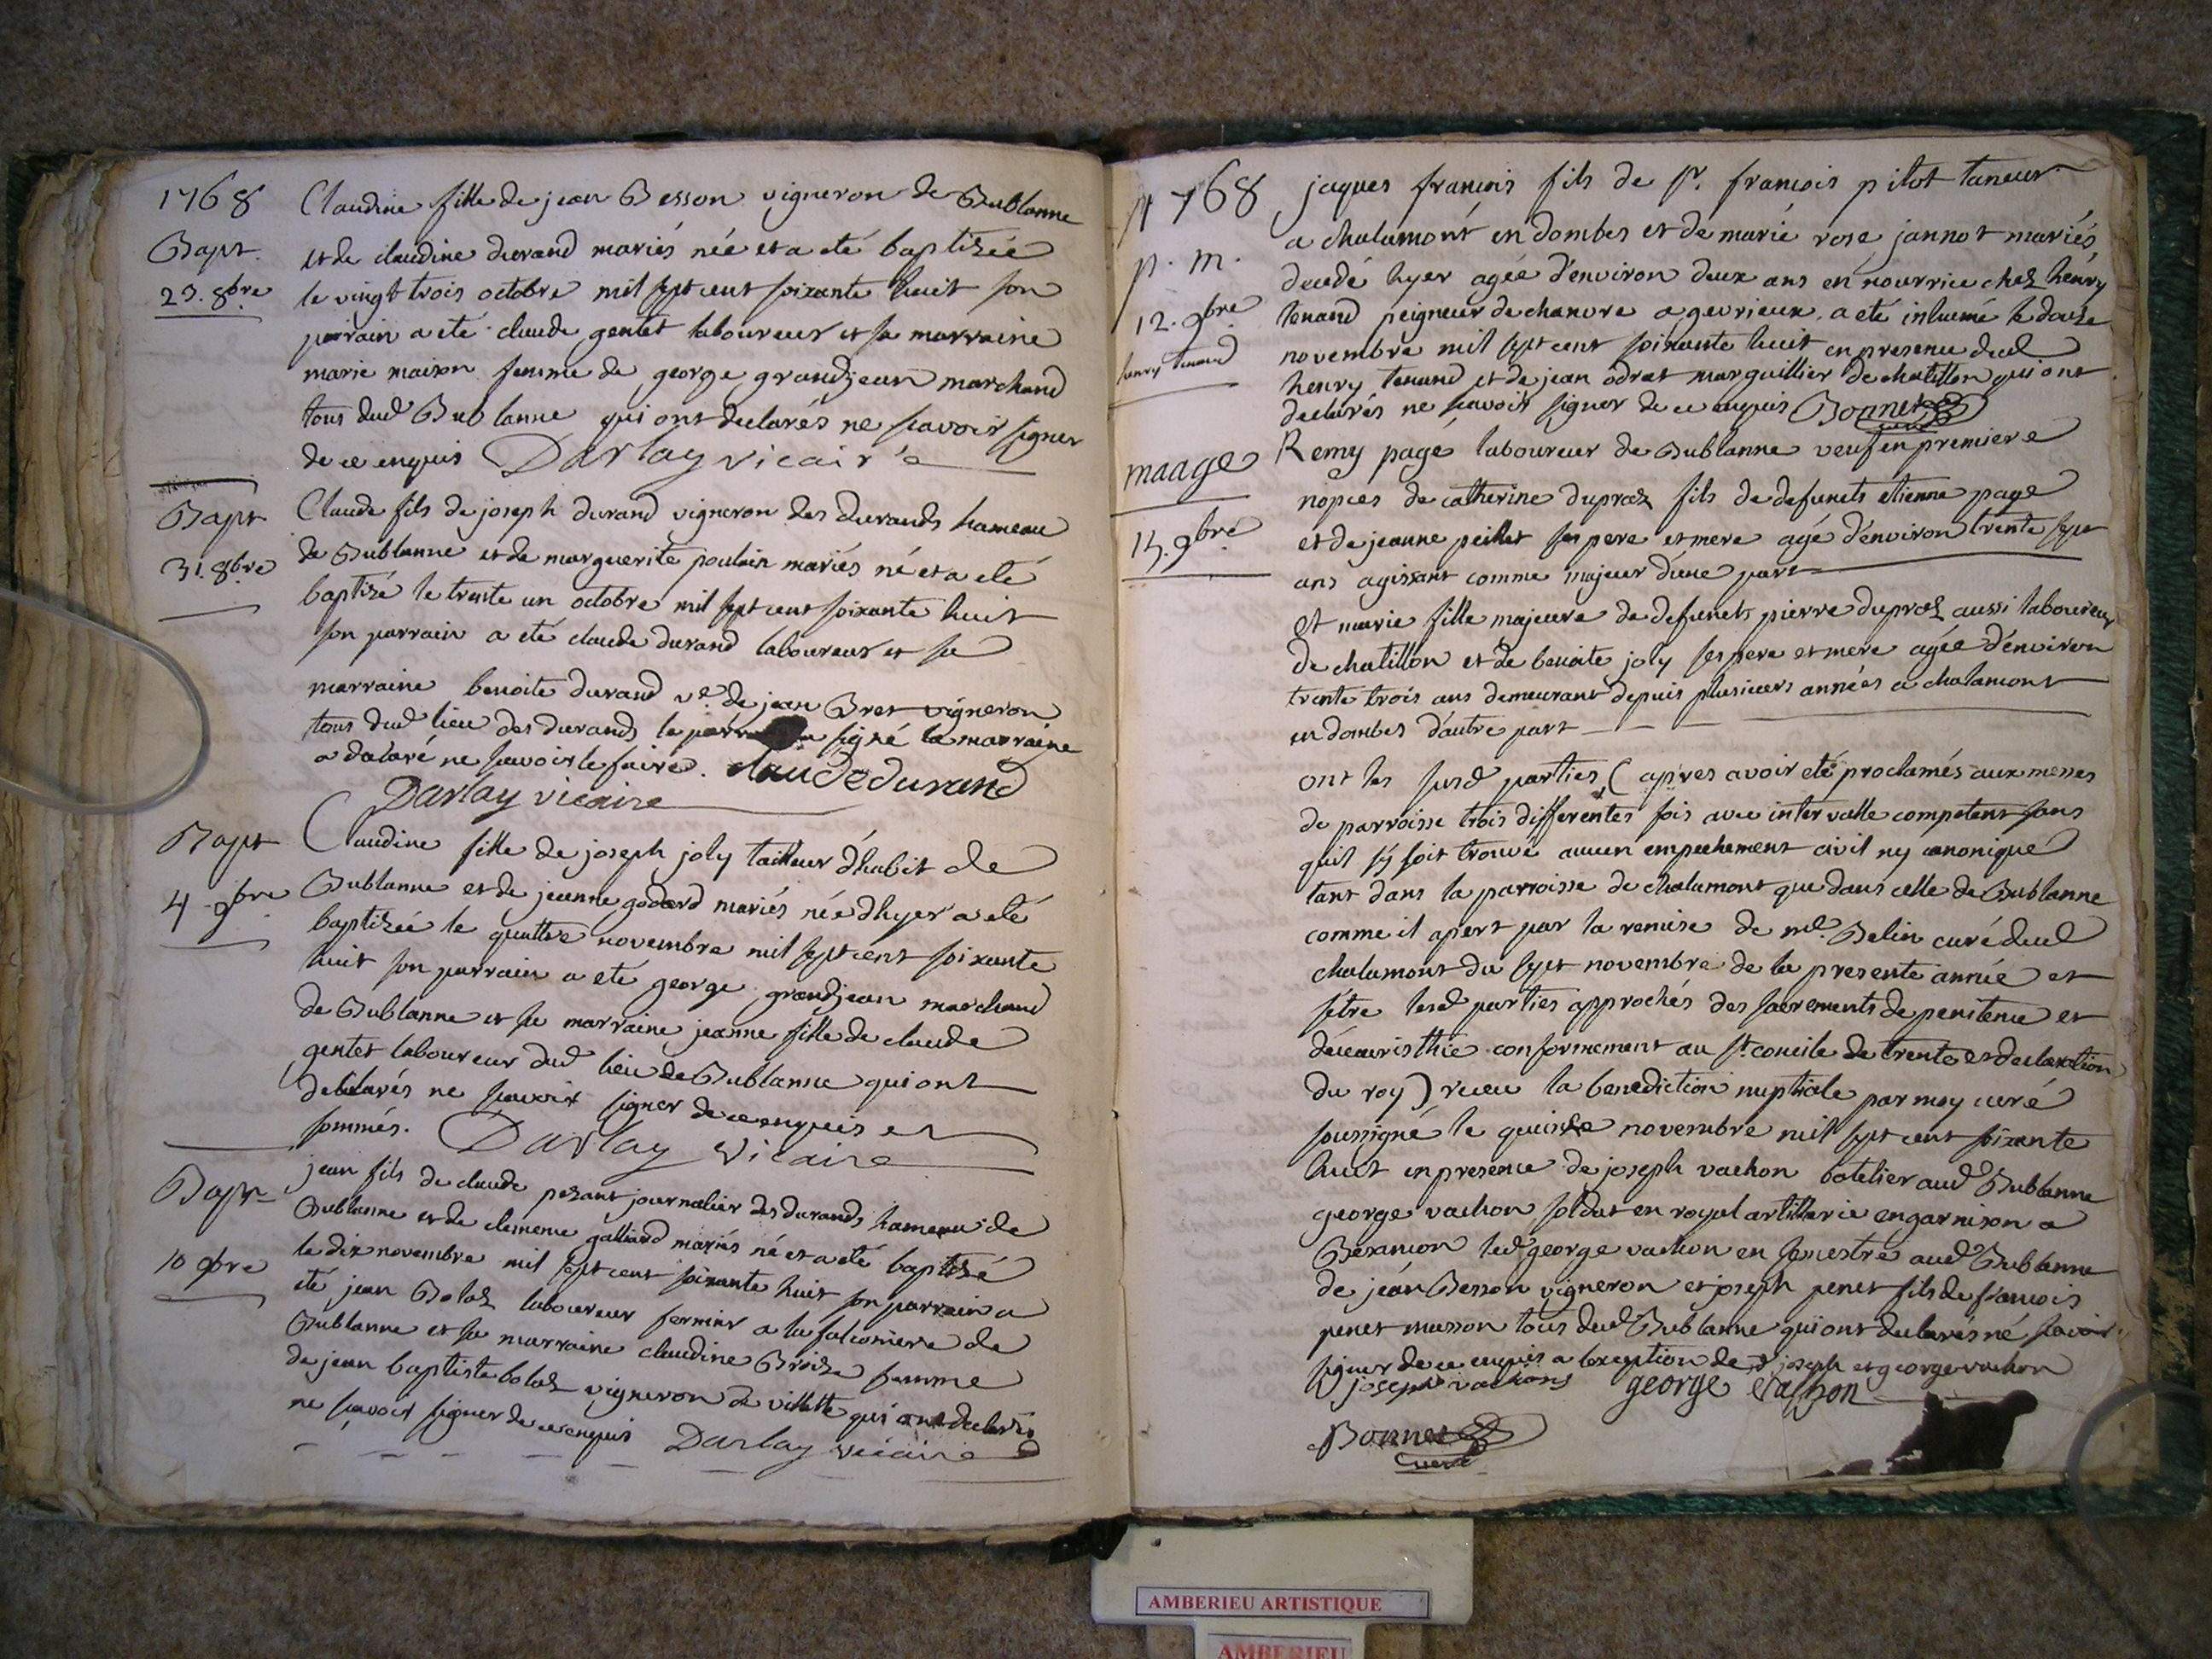 1768
Bapt.
23. 8bre
Claudine fille de jean Besson vigneron de Bublanne
et de claudine durand mariés née et a eté baptisée
le vingt trois octobre mil sept cent soixante huit son
parrain a eté claude gentet laboureur et sa marraine
marie maison femme de george grandjean marchand
tous dud Bublanne qui ont declarés ne scavoir signer
de ce enquis Darlay vicaire
Bapt
31. 8bre
Claude fils de joseph durand vigneron des durands hameau
de Bublanne et de marguerite poulain mariés né et a eté
baptisé le trente un octobre mil sept cent soixante huit
son parrain a eté claude durand laboureur et sa
marraine benoite durand ve. de jean Bret vigneron
tous dud lieu des durands le signé la marraine
a declaré ne scavoir le faire. claude durand
Darlay vicaire
Bapt
4 9bre
Claudine fille de joseph joly tailleur d'habit de
Bublanne et de jeanne godard mariés née d'hyer a eté
baptisée le quattre novembre mil sept cent soixante
huit son parrain a eté george grandjean marchand
de Bublanne et sa marraine jeanne fille de claude
gentet laboureur dud lieu de Bublanne qui ont
declarés ne scavoir signer de ce enquis et
sommés. Darlay vicaire
Bapt
10 9bre
jean fils de claude pesant journalier des durands hameau de
Bublanne et de clemence galliard mariés né et a eté baptisé
le dix novembre mil sept cent soixante huit son parrain a
eté jean Bolas laboureur fermier a la falconiere de
Bublanne et sa marraine claudine Broise femme
de jean baptiste bolas vigneron de villette qui ont declarés
ne scavoir signer de ce enquis Darlay vicaire
1768
p. m.
12. 9bre
henry tenand
jaques francois fils de sr. francois pilot taneur
a chalamont en dombes et de marie rose jannot mariés
decedé hyer agée d'environ deux ans en nourrice chez henry
tenand peigneur de chanvre a gevrieux a eté inhumé le douze
novembre mil sept cent soixante huit en presence dud
henry tenand et de jean odrat marguillier de chatillon qui ont
declarés ne scavoir signer de ce enquis Bonnet curé
maage
15. 9bre
Remy page laboureur de Bublanne veuf en premiere
nopces de catherine dupraz fils de defunets etienne page
et de jeanne peillet ses pere et mere agé d'environ trente sept
ans agissant comme majeur d'une part
et marie fille majeure de defunets pierre dupraz aussi laboureur
de chatillon et de benoite joly ses pere et mere agée d'environ
trente trois ans demeurant depuis plusieurs années a chalamont
en dombes d'autre part
ont les susd parties (apres avoir eté proclamés aux messes
de parroisse trois differentes fois avec intervalle competent sans
quil s'y soit trouvé aucun empechement civil ny canonique
tant dans la parroisse de chalamont que dans celle de Bublanne
comme il apert par la remise de Belin curé dud
chalamont du sept novembre de la presente année et
s'etre lesd parties approchés des sacrements de penitence et
d'eucaristhie conformement au st. concile de trente et declaration
du roy) receu la benediction nuptiale par moy curé
soussigné le quinze novembre mil sept cent soixante
huit en presence de joseph vachon batelier aud Bublanne
george vachon soldat en royal artillerie en garnison a
Besancon led george vachon en semestre aud Bublanne
de jean Besson vigneron et joseph penet fils de francois
penet masson tous dud Bublanne qui ont declarés ne scavoir
signer de ce enquis a l'exception de joseph et george vachon
joseph vachons george vachon
Bonnet
curé
AMBERIEU ARTISTIQUE
AMBERIEU